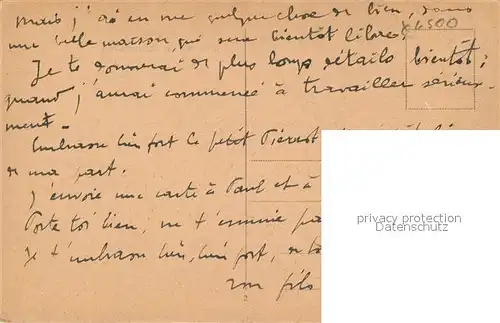 mais j'ai en vue quelque chose de bien, dans
une belle maison qui sera bientôt libre.
x 6500
Je te donnerai de plus longs détails bientôt;
quand j'aurai commencé à travailler sérieuse-
ment.
Embrasse bien fort le petit Pierrot
de ma part.
J'envoie une carte à Paul et à
Porte toi bien, ne t'ennuie pas
Je t'embrasse bien, bien fort, de
ton fils
2
privacy protection
Datenschutz